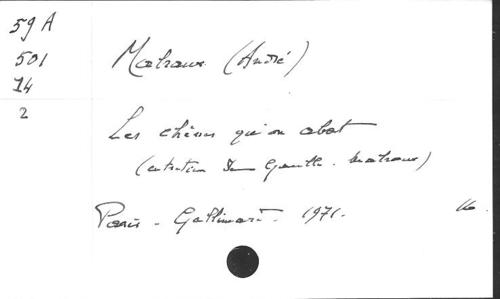 59 A
501
14
2
Malraux (André)
Les chênes qu'on abat
(entretien De Gaulle. Malraux)
Paris - Gallimard - 1971.
16